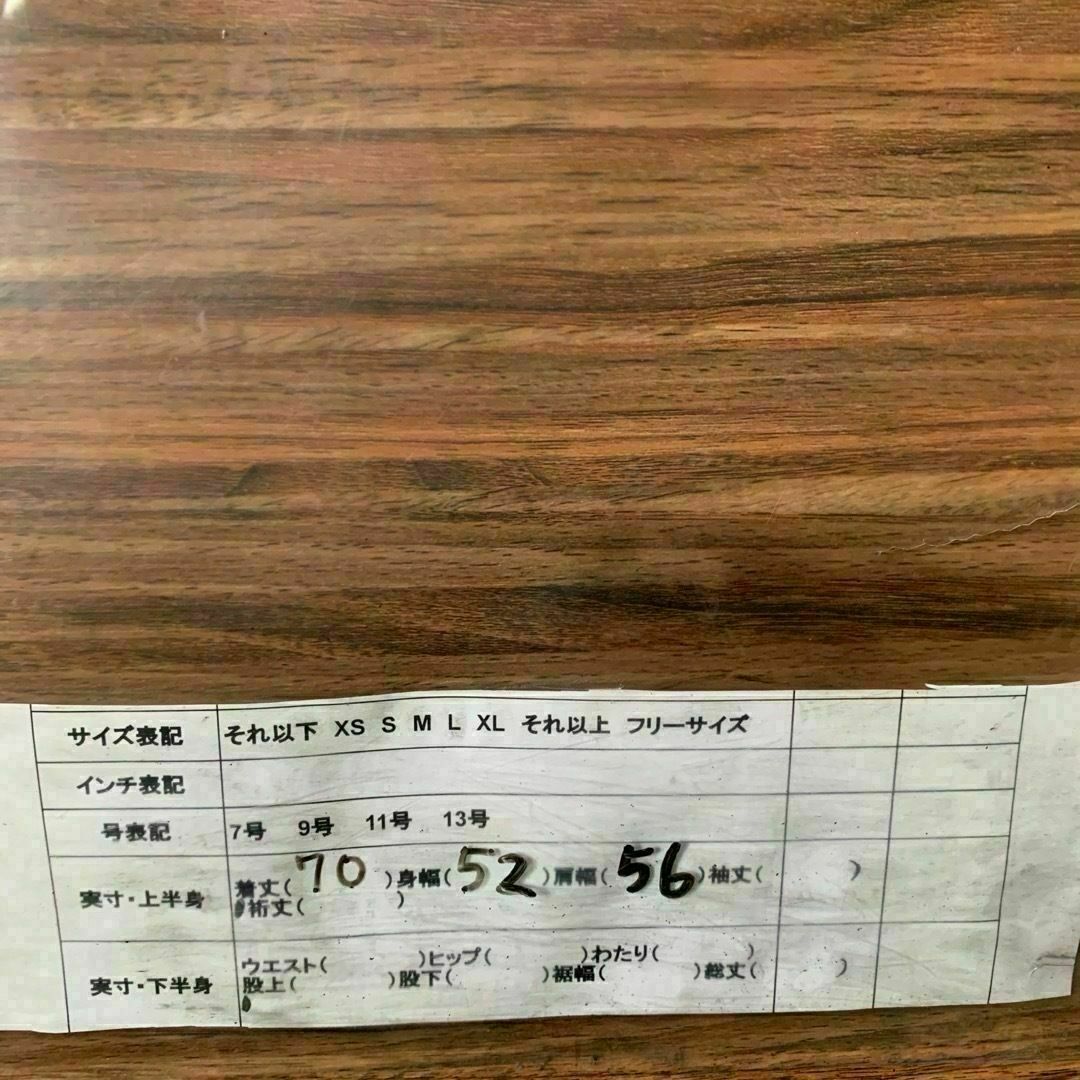 サイズ表記 それ以下 XS S M L XL それ以上 フリーサイズ
インチ表記
号表記 7号 9号 11号 13号
実寸・上半身 着丈( 70 )身幅( 52 )肩幅( 56 )袖丈( )
裄丈( )
実寸・下半身 ウエスト( )ヒップ( )わたり( )
股上( )股下( )裾幅( )総丈( )